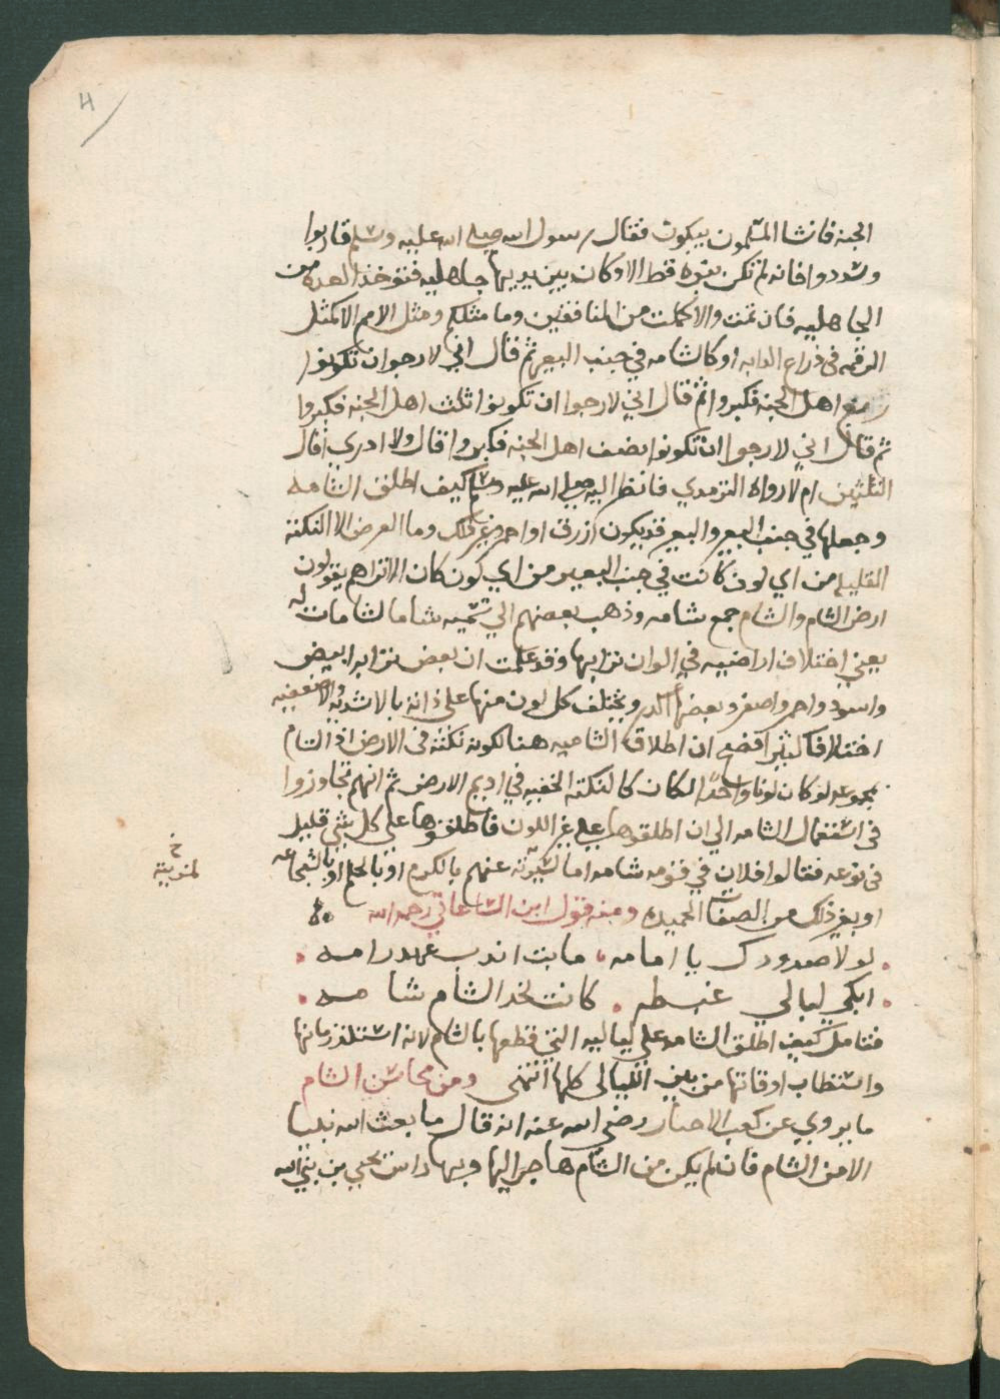 4
الجنه فانشا المسلمون يبكون فقال رسول الله صلى الله عليه وسلم قاربوا
وسددوا فانه لم تكن نبوه قط الا وكان بين يديها جاهليه فتوخذ العده من
الجاهليه فان تمت والا كملت من المنافقين وما مثلكم ومثل الامم الا كمثل
الرقمه في ذراع الدابه او كالشامه في جنب البعير ثم قال اني لارجو ان تكونوا
ربع اهل الجنه فكبروا ثم قال اني لارجوا ان تكونوا ثلث اهل الجنه فكبروا
ثم قال اني لارجوا ان تكونوا نصف اهل الجنه فكبروا قال ولا ادري اقال
الثلثين ام لا رواه الترمذي فانظر اليه صلى الله عليه وسلم كيف اطلق الشامه
وجعلها في جنب البعير والبعير قد يكون ازرق او احمر وغير ذلك وما الغرض الا النكتة
القليله من اي لون كانت في جنب البعير من اي لون كان الا تراهم يقولون
ارض الشام والشام جمع شامه وذهب بعضهم الي تسميه شاما لشامات له
يعني اختلاف اراضيه في الوان ترابها وقد علمت ان بعض ترابه ابيض
واسود واحمر واصفر وبعضها اكدر ويختلف كل لون منها على ذاته بالاشديه والاضعفيه
اختلافا كثيرا فصح ان اطلاق الشاميه هنا لكونه نكتة في الارض اذ الشام
بمجموعه لو كان لونا واحدا لكان كالنكتة الخفيه في اديم الارض ثم انهم تجاوزوا
في استعمال الشامه الي ان اطلقوها علي غير اللون فاطلقوها علي كل شي قليل
في نوعه فقالوا فلان في قومه شامه اما لتميزه عنهم بالكرم او بالحلم او بالشجاعه
خ
لمزيته
او بغير ذلك من الصفات الحميده ومنه قول ابن الساعاتي رحمه الله
لولا صدودك يا امامه ما بت اندب عهد رامه
ابكي ليالي غبطه كانت لخد الشام شامه
فتامل كيف اطلق الشامه علي لياليه التي قطعها بالشام لانه استلذ زمانها
واستطاب اوقاتها من بين الليالي كلها انتهى ومن محاسن الشام
ما يروي عن كعب الاحبار رضي الله عنه انه قال ما بعث الله نبيا
الا من الشام فان لم يكن من الشام هاجر اليها وبها راس يحيي بن نبي الله